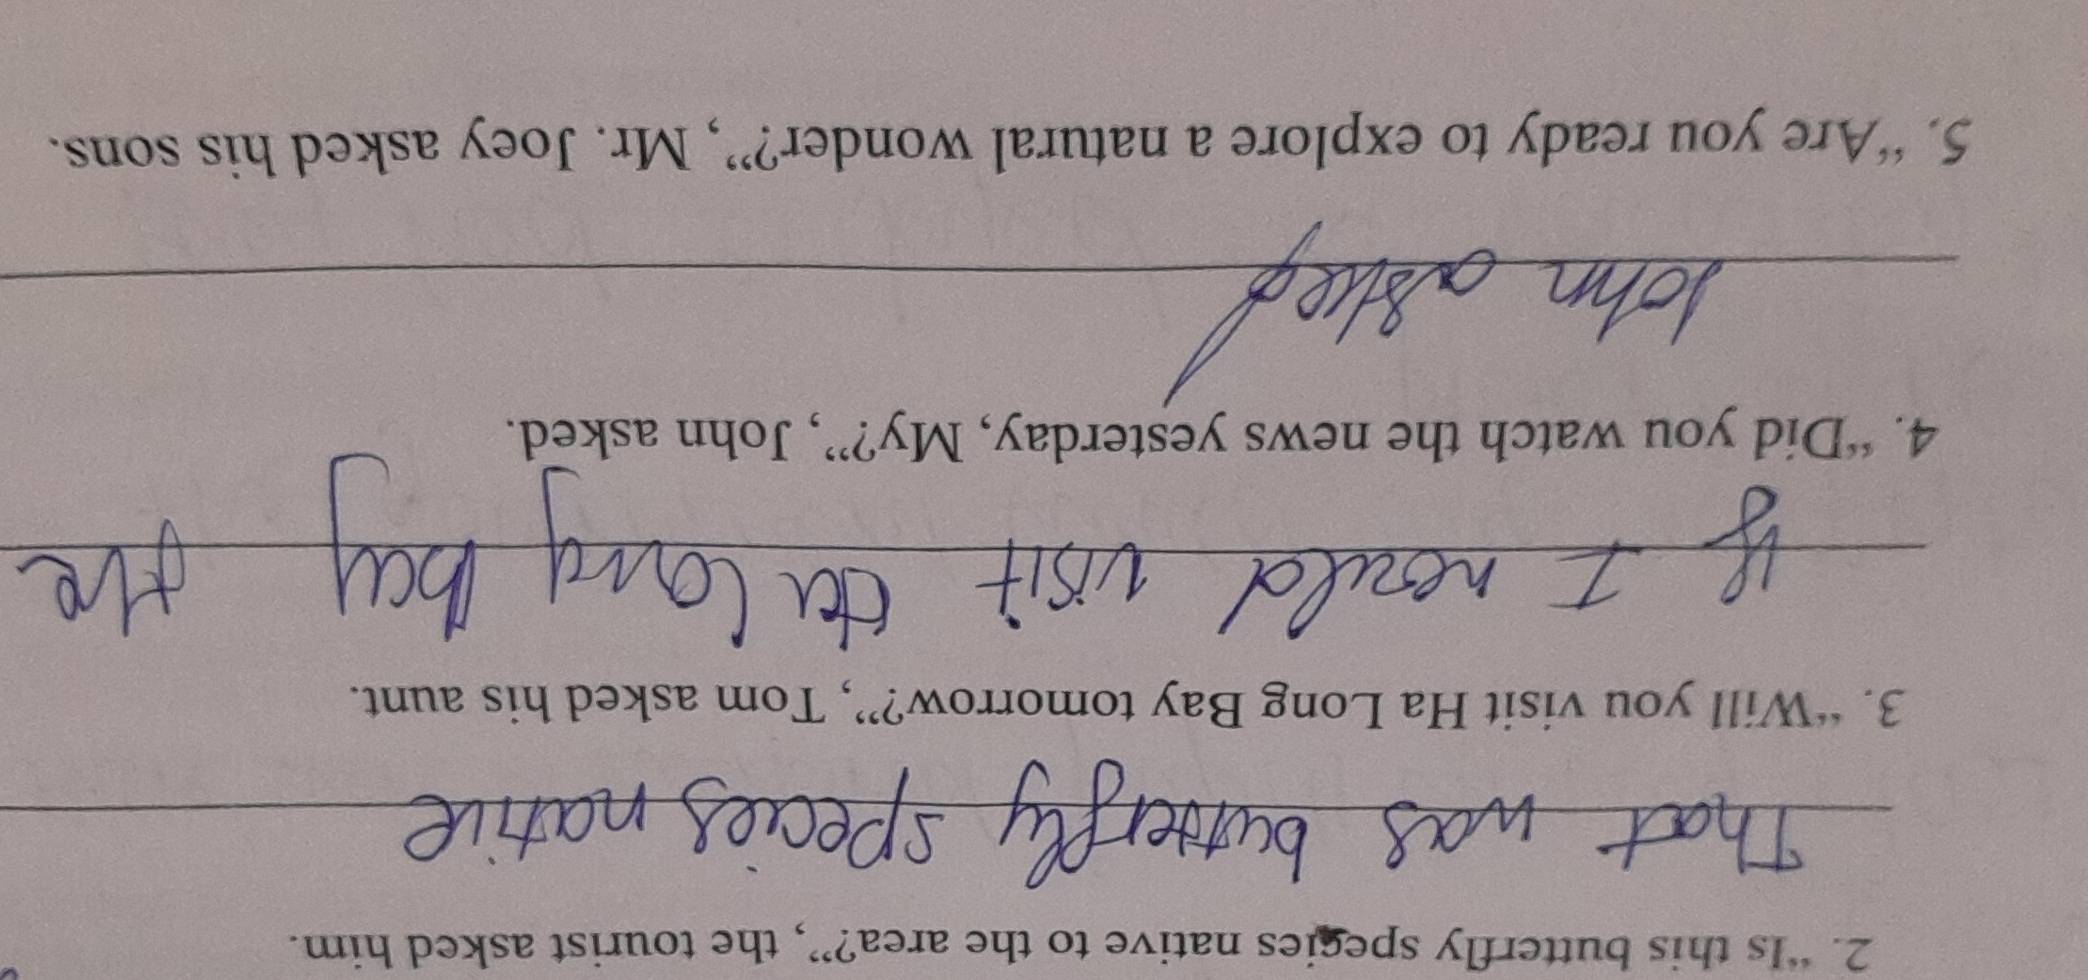 2. “Is this butterfly species native to the area?”, the tourist asked him.
That was butterfly species native
3. “Will you visit Ha Long Bay tomorrow?”, Tom asked his aunt.
If I would visit Ha Long bay the
4. “Did you watch the news yesterday, My?”, John asked.
John asked
5. “Are you ready to explore a natural wonder?”, Mr. Joey asked his sons.